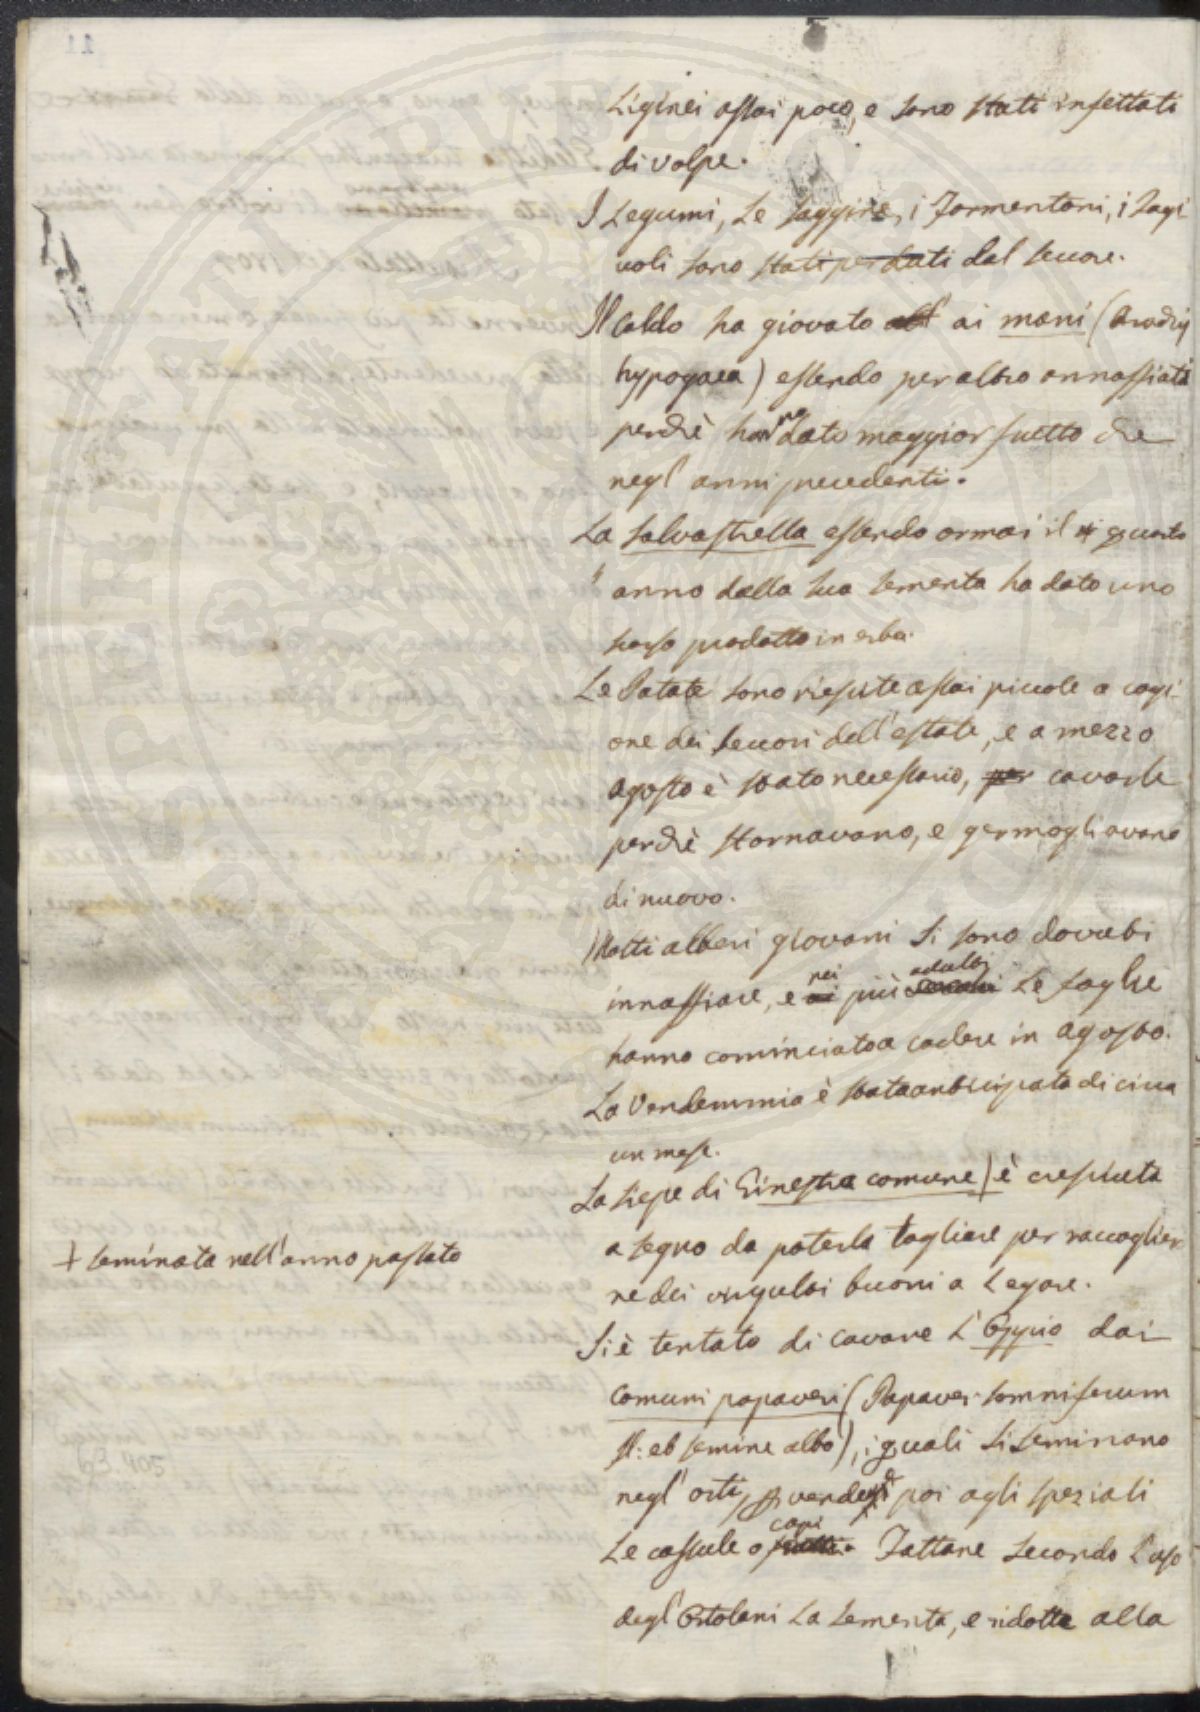 Liginei assai poco, e sono stati infettati
di volpe.
I Legumi, Le saggine, i formentoni, i fagi
uoli sono stati perduti dal seccore.
Il Caldo ha giovato all' ai mani (Arachis
hypogaea) essendo per altro annaffiati
perchè hanno dato maggior frutto che
negl' anni precedenti.
La salvastrella essendo ormai il quarto
anno dalla sua sementa ha dato uno
scarso prodotto in erba.
Le Patate sono riescite assai piccole a cagi-
one dei seccori dell'estate, e a mezzo
agosto è stato necessario, per cavarle
perchè stornavano, e germogliavano
di nuovo.
Molti alberi giovani si sono dovuti
innaffiare, e ai nei più adulti Le foglie
hanno cominciato a cadere in agosto.
La Vendemmia è stata anticipata di circa
un mese.
La siepe di Ginestra comune) è cresciuta
+ seminata nell'anno passato
a segno da poterla tagliare per raccoglier-
ne dei virgulti buoni a Legare.
Si è tentato di cavare L'Oppio dai
comuni papaveri (Papaver somniferum
fl: et semine albo), i quali si seminano
negl' orti, vendesi poi agli speziali
Le cassule o capi frutti. Fattane secondo l'uso
degl' Ortolani La sementa, e ridotta alla
11